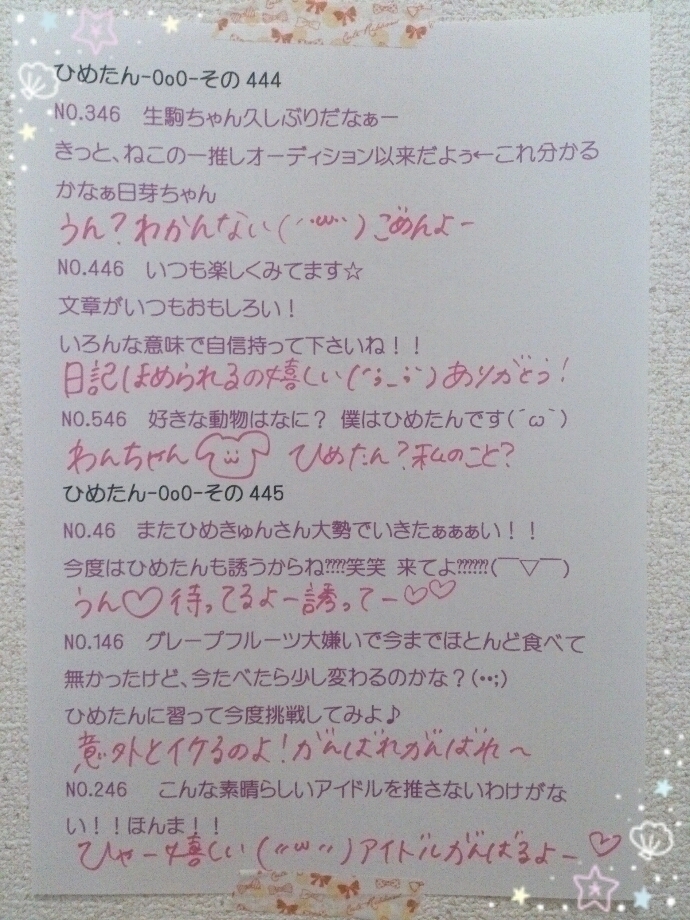 ひめたん-OoO-その444
NO.346 生駒ちゃん久しぶりだなぁー
きっと、ねこの一推しオーディション以来だよぅ←これ分かる
かなぁ日芽ちゃん
うん?わかんない(´･ω･`)ごめんよー
NO.446 いつも楽しくみてます☆
文章がいつもおもしろい!
いろんな意味で自信持って下さいね!!
日記ほめられるの嬉しい ありがとう!
NO.546 好きな動物はなに? 僕はひめたんです(´ω`)
わんちゃん ひめたん?私のこと?
ひめたん-OoO-その445
NO.46 またひめきゅんさん大勢でいきたぁぁぁい!!
今度はひめたんも誘うからね?????笑笑 来てよ??????(￣▽￣)
うん♡待ってるよー誘ってー♡♡
NO.146 グレープフルーツ大嫌いで今までほとんど食べて
無かったけど、今たべたら少し変わるのかな?(••;)
ひめたんに習って今度挑戦してみよ♪
意外とイケるのよ!がんばれがんばれ〜
NO.246 こんな素晴らしいアイドルを推さないわけがな
い!!ほんま!!
ひゃー嬉しい(〃ω〃)アイドルがんばるよー♡